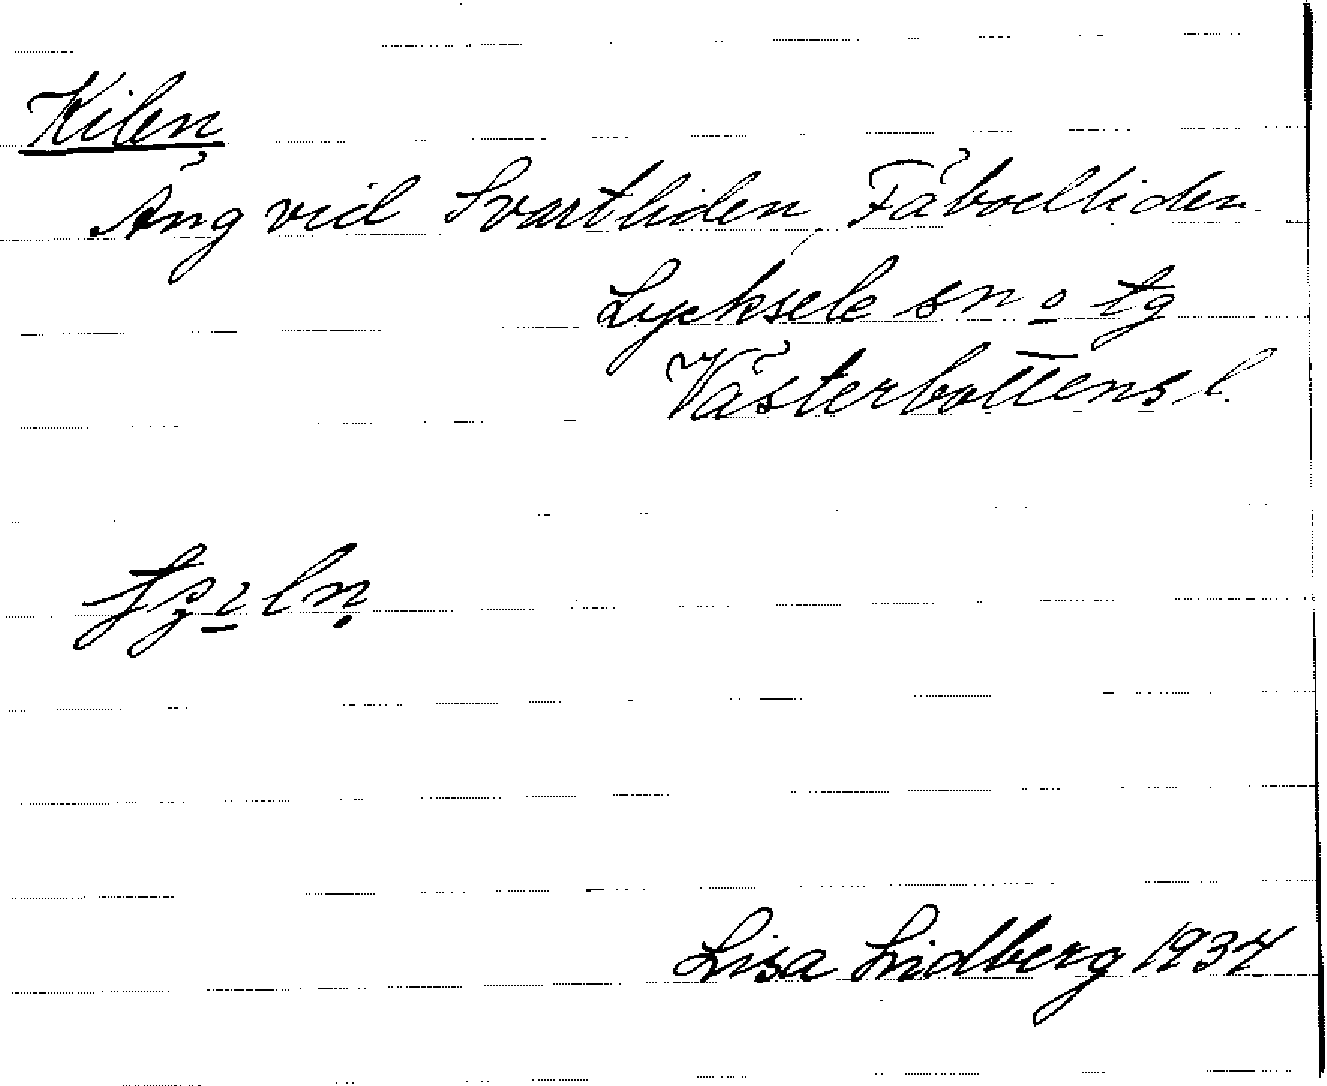 Kilen
Äng vid Svartliden, Fäbodliden
Lycksele sn o tg
Västerbottens l.
Lisa Lidberg 1937